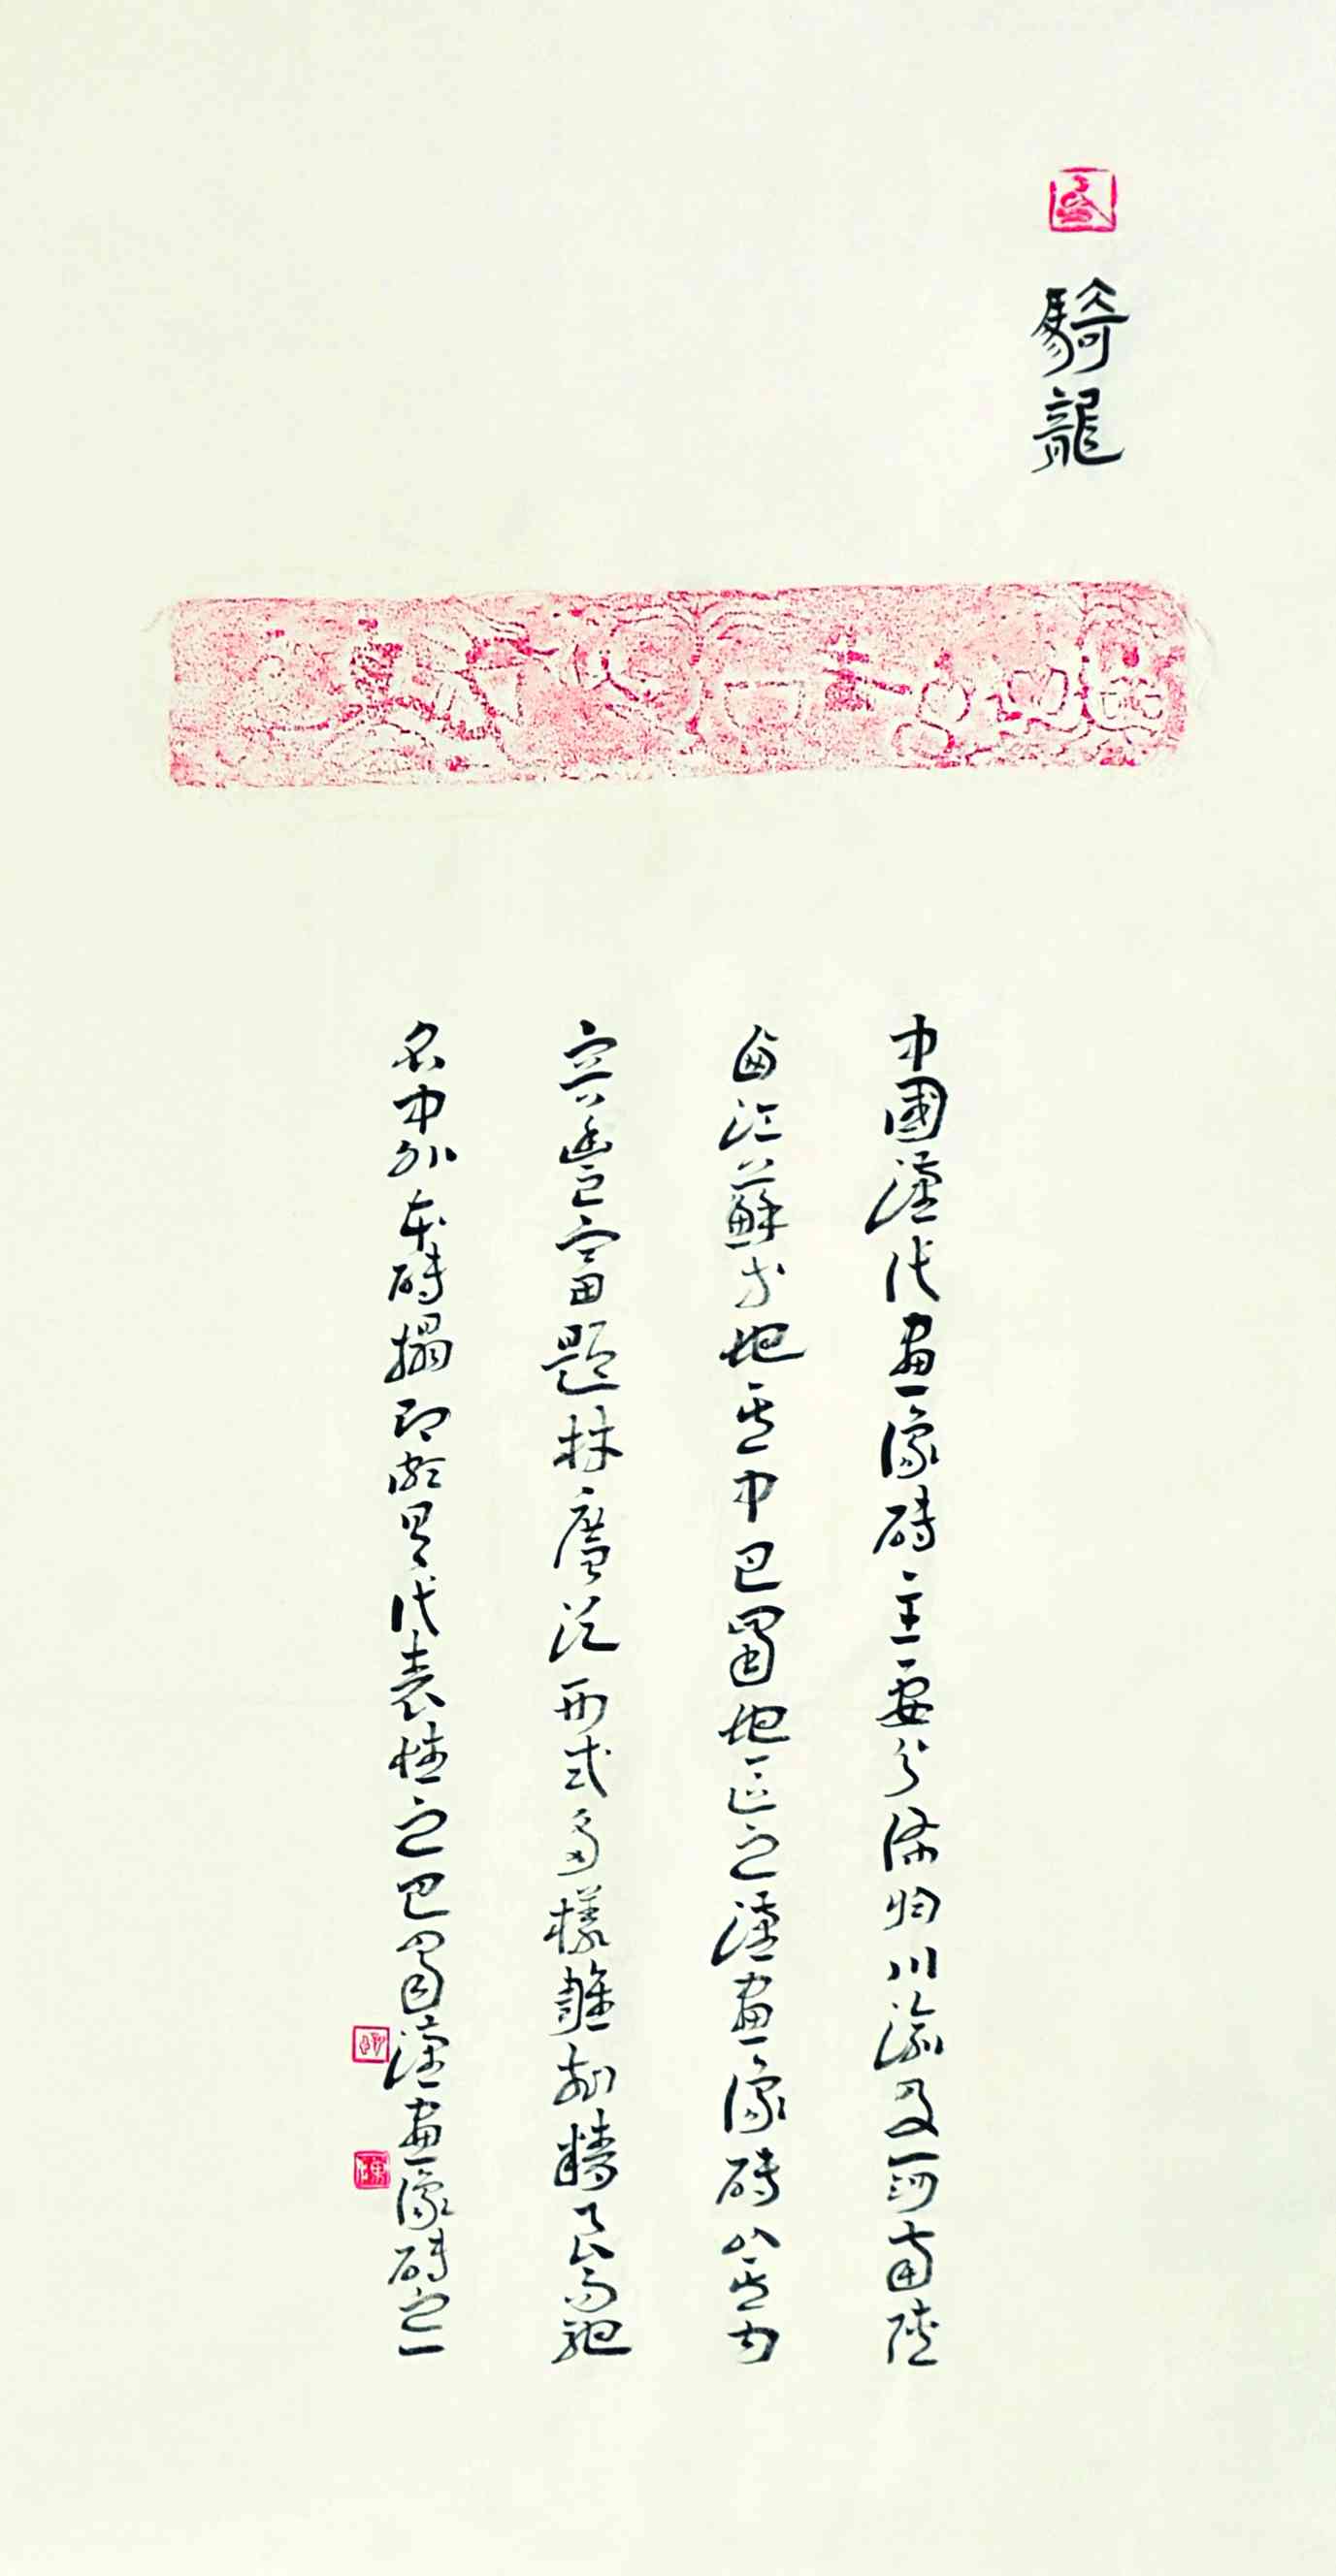 騎龍
中國漢代畫像磚主要分佈於川渝及河南陝
西江蘇等地其中巴蜀地區之漢畫像磚以其內
容豐富題材廣泛形式多樣雕刻精良而馳
名中外本磚搨即頗具代表性之巴蜀漢畫像磚之一